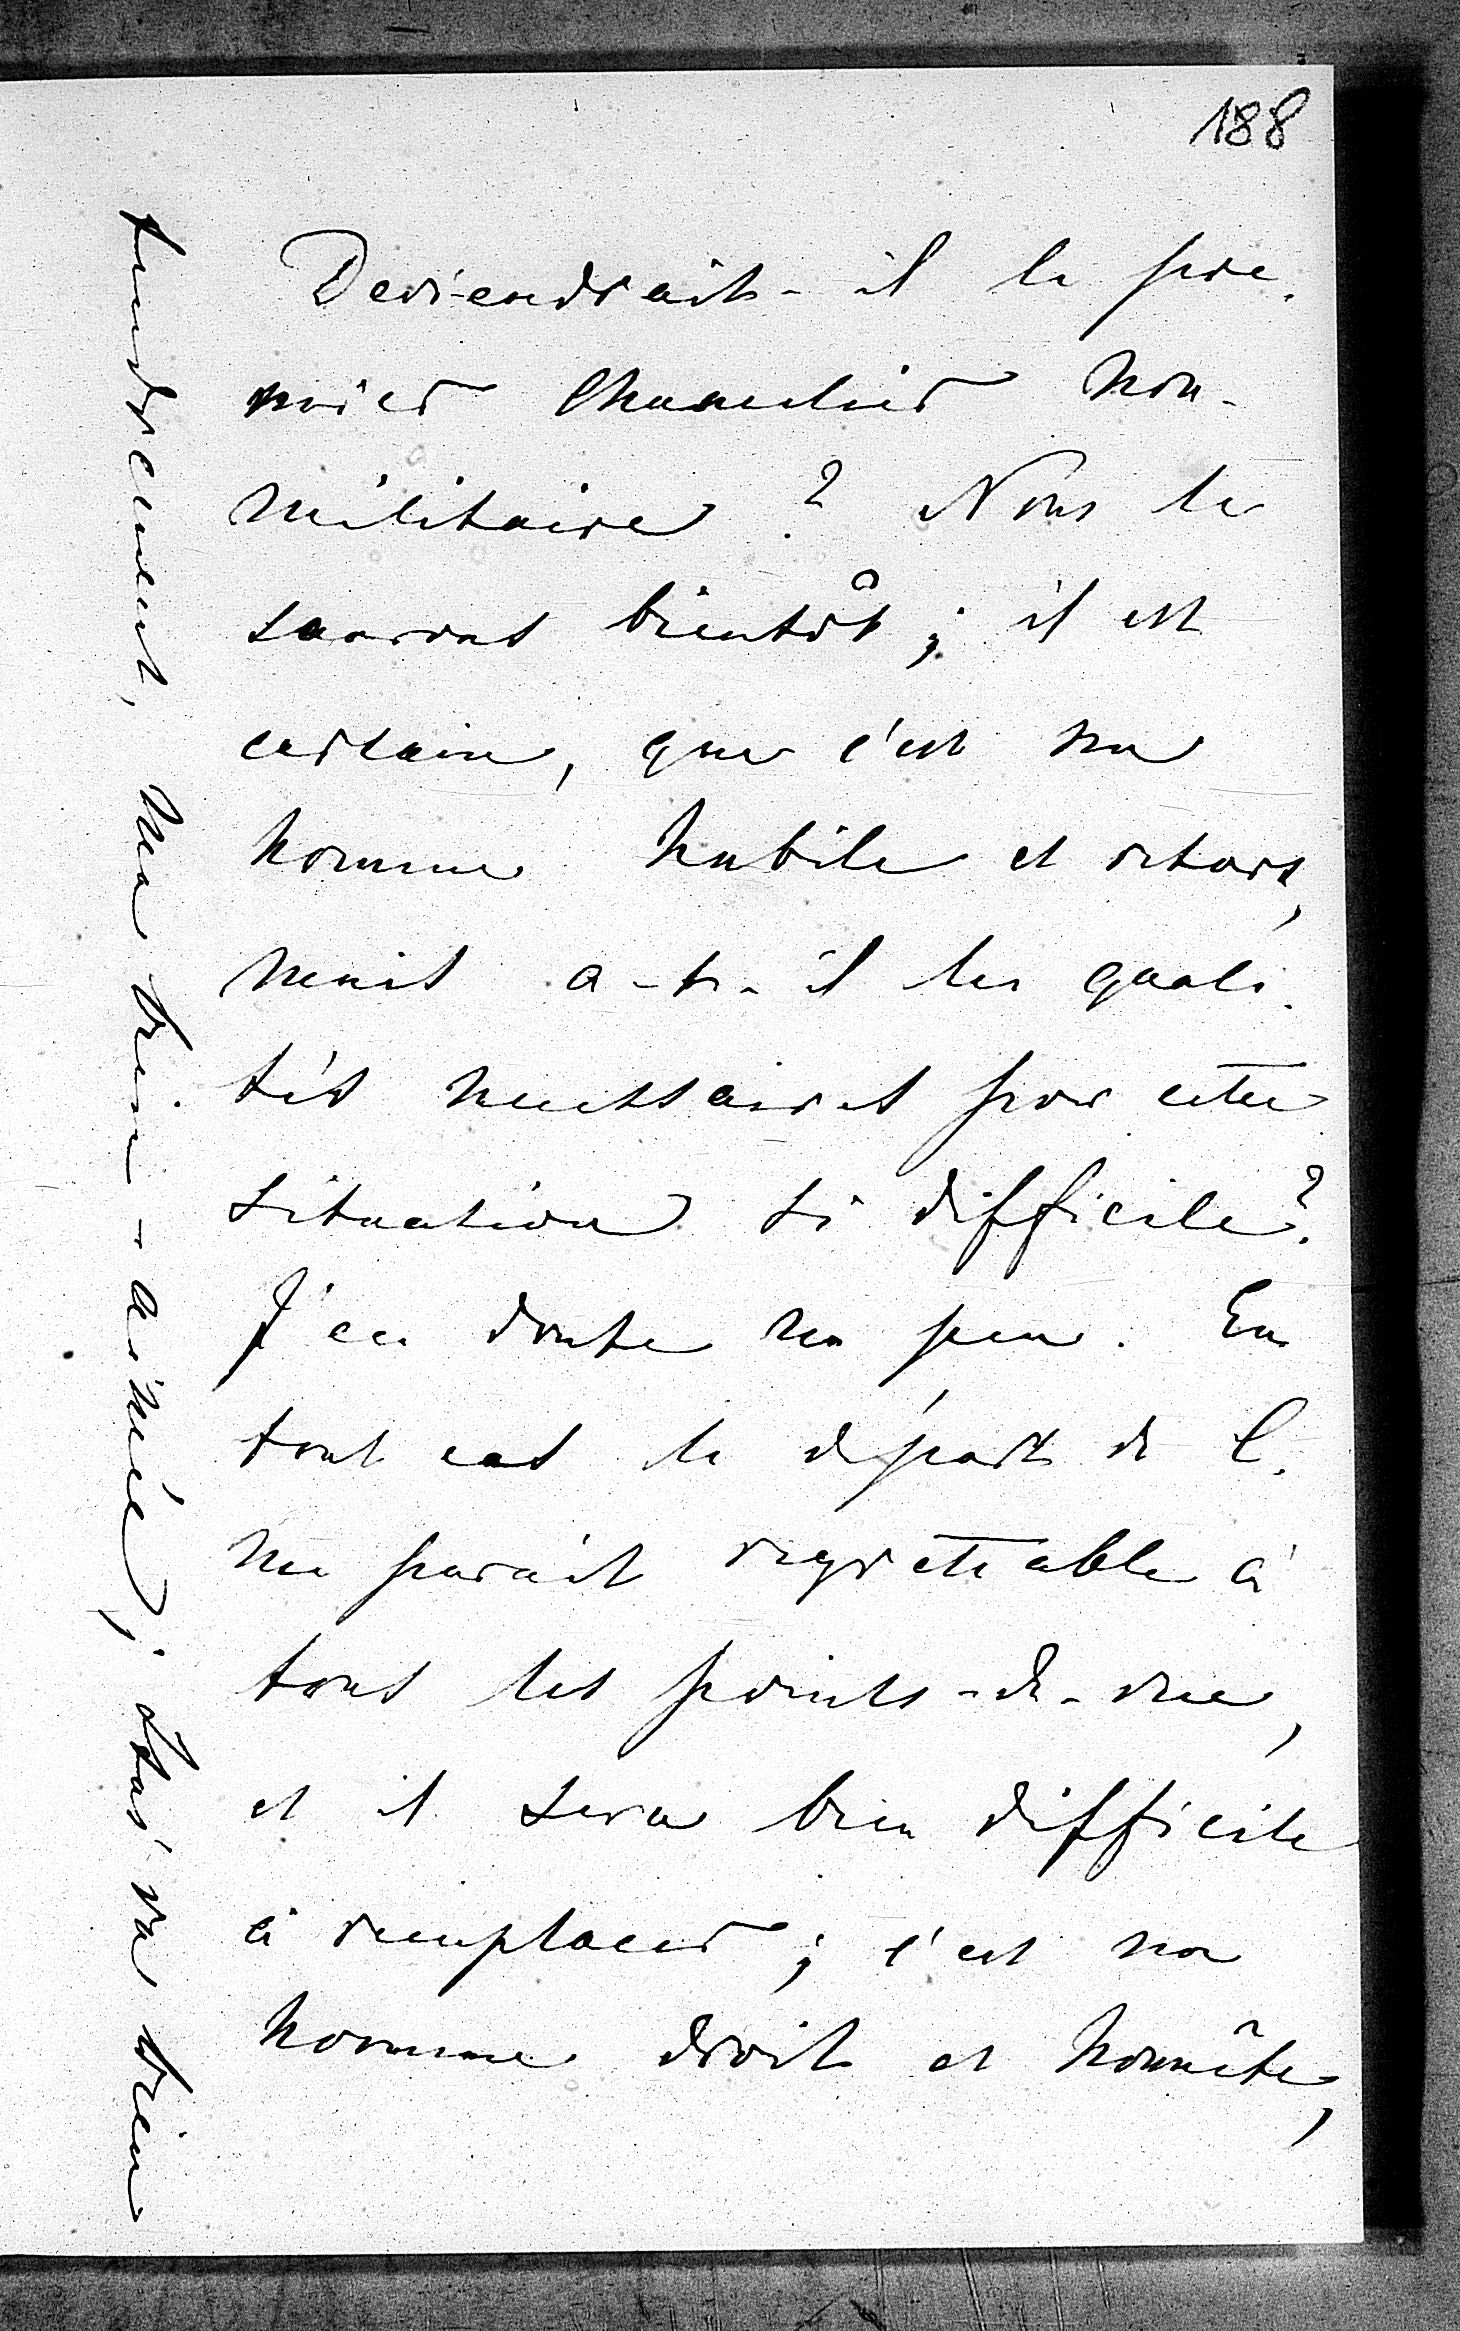 188
Deviendrait-il le pre-
mier Chancelier non-
militaire ? Nous le
saurons bientôt ; il est
certain, que c'est un
homme habile et retors,
mais a-t-il les quali-
tés nécessaires pour cette
situation si difficile ?
J'en doute un peu. En
tout cas le départ de C.
me paraît regrettable à
tous les points-de-vue,
et il sera bien difficile
à remplacer ; c'est un
homme droit et honnête,
tendrement, ma bien-aimée ; bien